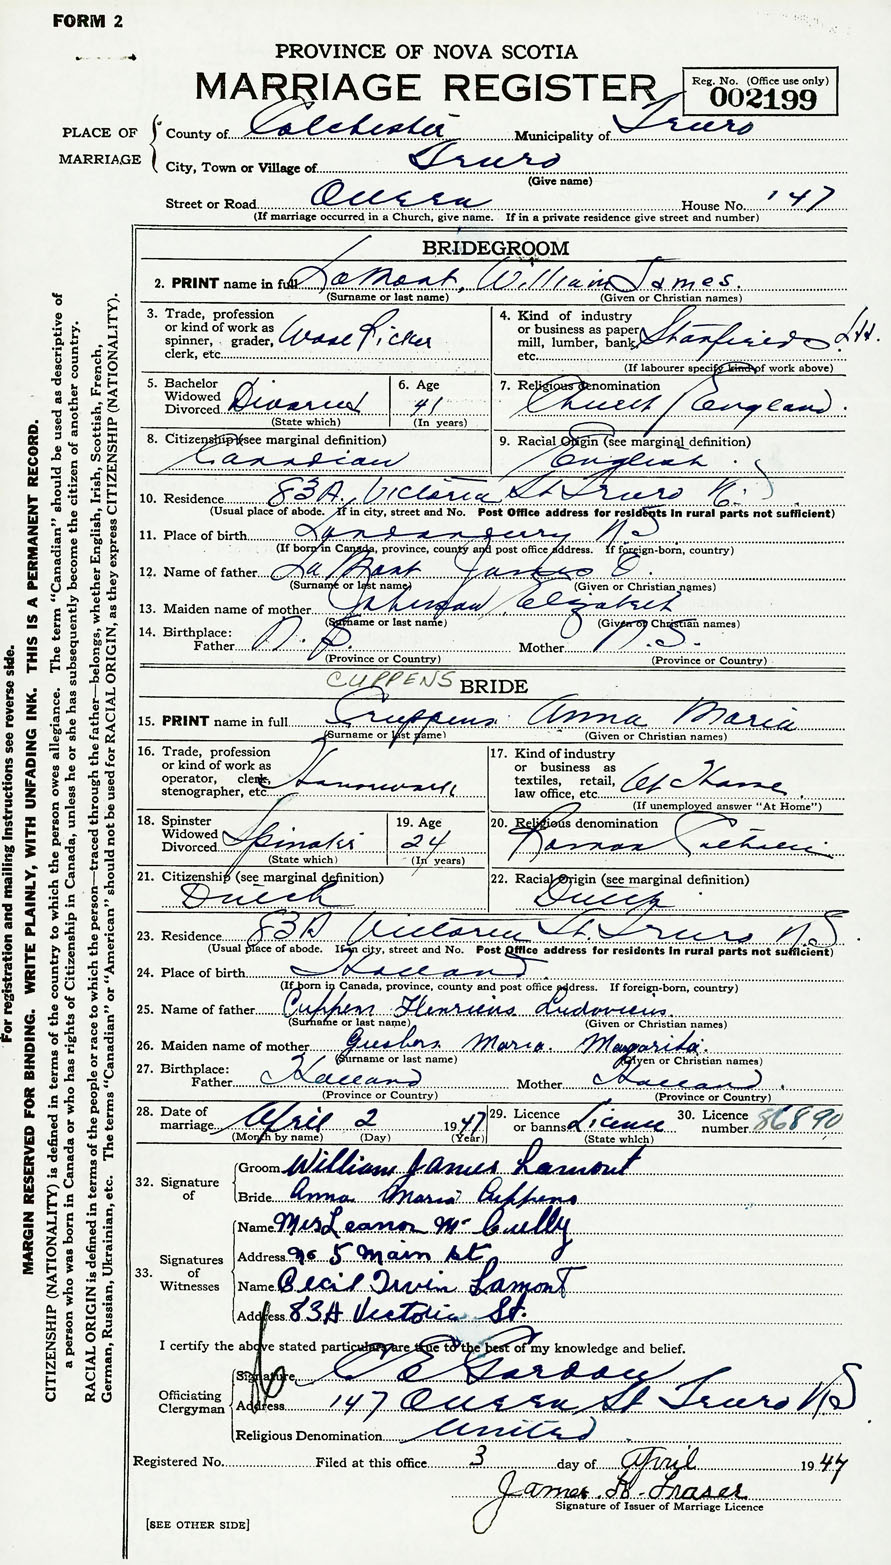 FORM 2
PROVINCE OF NOVA SCOTIA
MARRIAGE REGISTER
Reg. No. (Office use only)
002199
PLACE OF MARRIAGE
County of Colchester Municipality of Truro
City, Town or Village of Truro
(Give name)
Street or Road Queen House No. 147
(If marriage occurred in a Church, give name. If in a private residence give street and number)
BRIDEGROOM
2. PRINT name in full LaMont, William James.
(Surname or last name) (Given or Christian names)
3. Trade, profession or kind of work as spinner, grader, clerk, etc. Wool Picker
4. Kind of industry or business as paper mill, lumber, bank, etc. Stanfields Ltd.
(If labourer specify kind of work above)
5. Bachelor Widowed Divorced Divorced
(State which)
6. Age 41
(In years)
7. Religious denomination Church England.
8. Citizenship (see marginal definition) Canadian
9. Racial Origin (see marginal definition) English.
10. Residence 83A, Victoria St Truro N.S
(Usual place of abode. If in city, street and No. Post Office address for residents in rural parts not sufficient)
11. Place of birth Londonderry N S
(If born in Canada, province, county and post office address. If foreign-born, country)
12. Name of father LaMont James E.
(Surname or last name) (Given or Christian names)
13. Maiden name of mother Elizabeth
(Surname or last name) (Given or Christian names)
14. Birthplace: Father N.S. Mother N.S.
(Province or Country) (Province or Country)
CUPPENS
BRIDE
15. PRINT name in full Cruppens Anna Maria
(Surname or last name) (Given or Christian names)
16. Trade, profession or kind of work as operator, clerk, stenographer, etc. Housework
17. Kind of industry or business as textiles, retail, law office, etc. At Home.
(If unemployed answer "At Home")
18. Spinster Widowed Divorced Spinster
(State which)
19. Age 24
(In years)
20. Religious denomination Roman Catholic
21. Citizenship (see marginal definition) Dutch
22. Racial Origin (see marginal definition) Dutch
23. Residence 83A Victoria St. Truro N.S
(Usual place of abode. If in city, street and No. Post Office address for residents in rural parts not sufficient)
24. Place of birth Holland.
(If born in Canada, province, county and post office address. If foreign-born, country)
25. Name of father Cuppen Henricus Ludovicus.
(Surname or last name) (Given or Christian names)
26. Maiden name of mother Maria. Margarita.
(Surname or last name) (Given or Christian names)
27. Birthplace: Father Holland Mother Holland.
(Province or Country) (Province or Country)
28. Date of marriage April 2 1947
(Month by name) (Day) (Year)
29. Licence or banns Licence
(State which)
30. Licence number 86890
32. Signature of
Groom William James Lamont
Bride Anna Maria Cuppens
33. Signatures of Witnesses
Name Mrs Leanor McCuelly
Address no 5 Main St
Name Cecil Irvin Lamont
Address 83A Victoria St.
I certify the above stated particulars are true to the best of my knowledge and belief.
Officiating Clergyman
Signature C E Gordon
Address 147 Queen St Truro NS
Religious Denomination United
Registered No. Filed at this office 3 day of April 1947
James H. Fraser
Signature of Issuer of Marriage Licence
[SEE OTHER SIDE]
For registration and mailing instructions see reverse side.
MARGIN RESERVED FOR BINDING. WRITE PLAINLY, WITH UNFADING INK. THIS IS A PERMANENT RECORD.
CITIZENSHIP (NATIONALITY) is defined in terms of the country to which the person owes allegiance. The term "Canadian" should be used as descriptive of
a person who was born in Canada or who has rights of Citizenship in Canada, unless he or she has subsequently become the citizen of another country.
RACIAL ORIGIN is defined in terms of the people or race to which the person—traced through the father—belongs, whether English, Irish, Scottish, French,
German, Russian, Ukrainian, etc. The terms "Canadian" or "American" should not be used for RACIAL ORIGIN, as they express CITIZENSHIP (NATIONALITY).